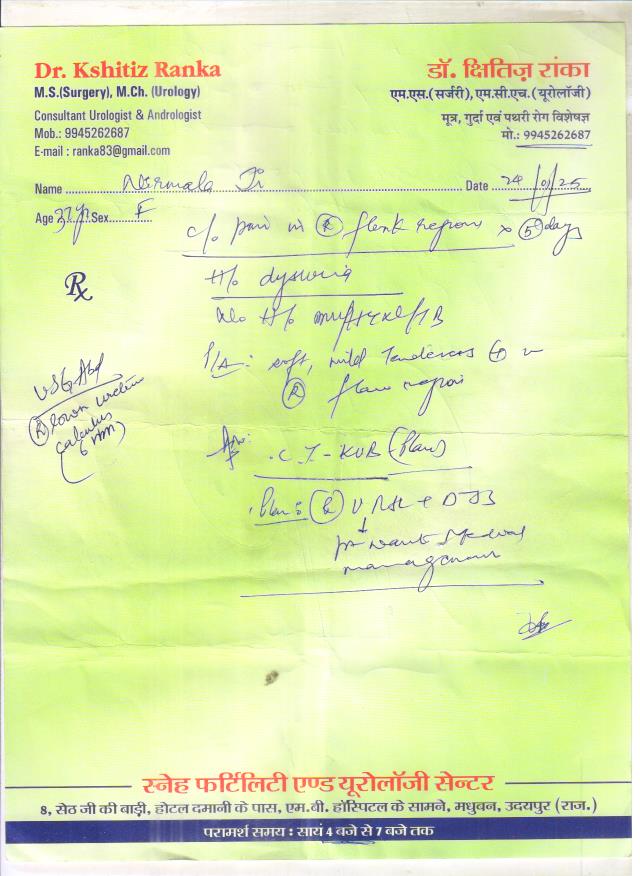 Dr. Kshitiz Ranka
M.S.(Surgery), M.Ch. (Urology)
Consultant Urologist & Andrologist
Mob.: 9945262687
E-mail : ranka83@gmail.com
डॉ. क्षितिज़ रांका
एम.एस.(सर्जरी), एम.सी.एच.(यूरोलॉजी)
मूत्र, गुर्दा एवं पथरी रोग विशेषज्ञ
मो.: 9945262687
Name Nirmala Ji Date 24/01/25
Age 37yr Sex F
c/o pain in (R) flank region x (5) days
H/o dysuria
No H/o
P/A: soft, mild tenderness (+) in
(R) flank region
℞
USG-Abd
(R) lower ureteric
calculus
(6 mm)
Adv: CT-KUB (Plain)
Plan: (R) URSL + DJS
↓
pt wants medical
management
स्नेह फर्टिलिटी एण्ड यूरोलॉजी सेन्टर
8, सेठ जी की बाड़ी, होटल दमानी के पास, एम.बी. हॉस्पिटल के सामने, मधुबन, उदयपुर (राज.)
परामर्श समय : सायं 4 बजे से 7 बजे तक